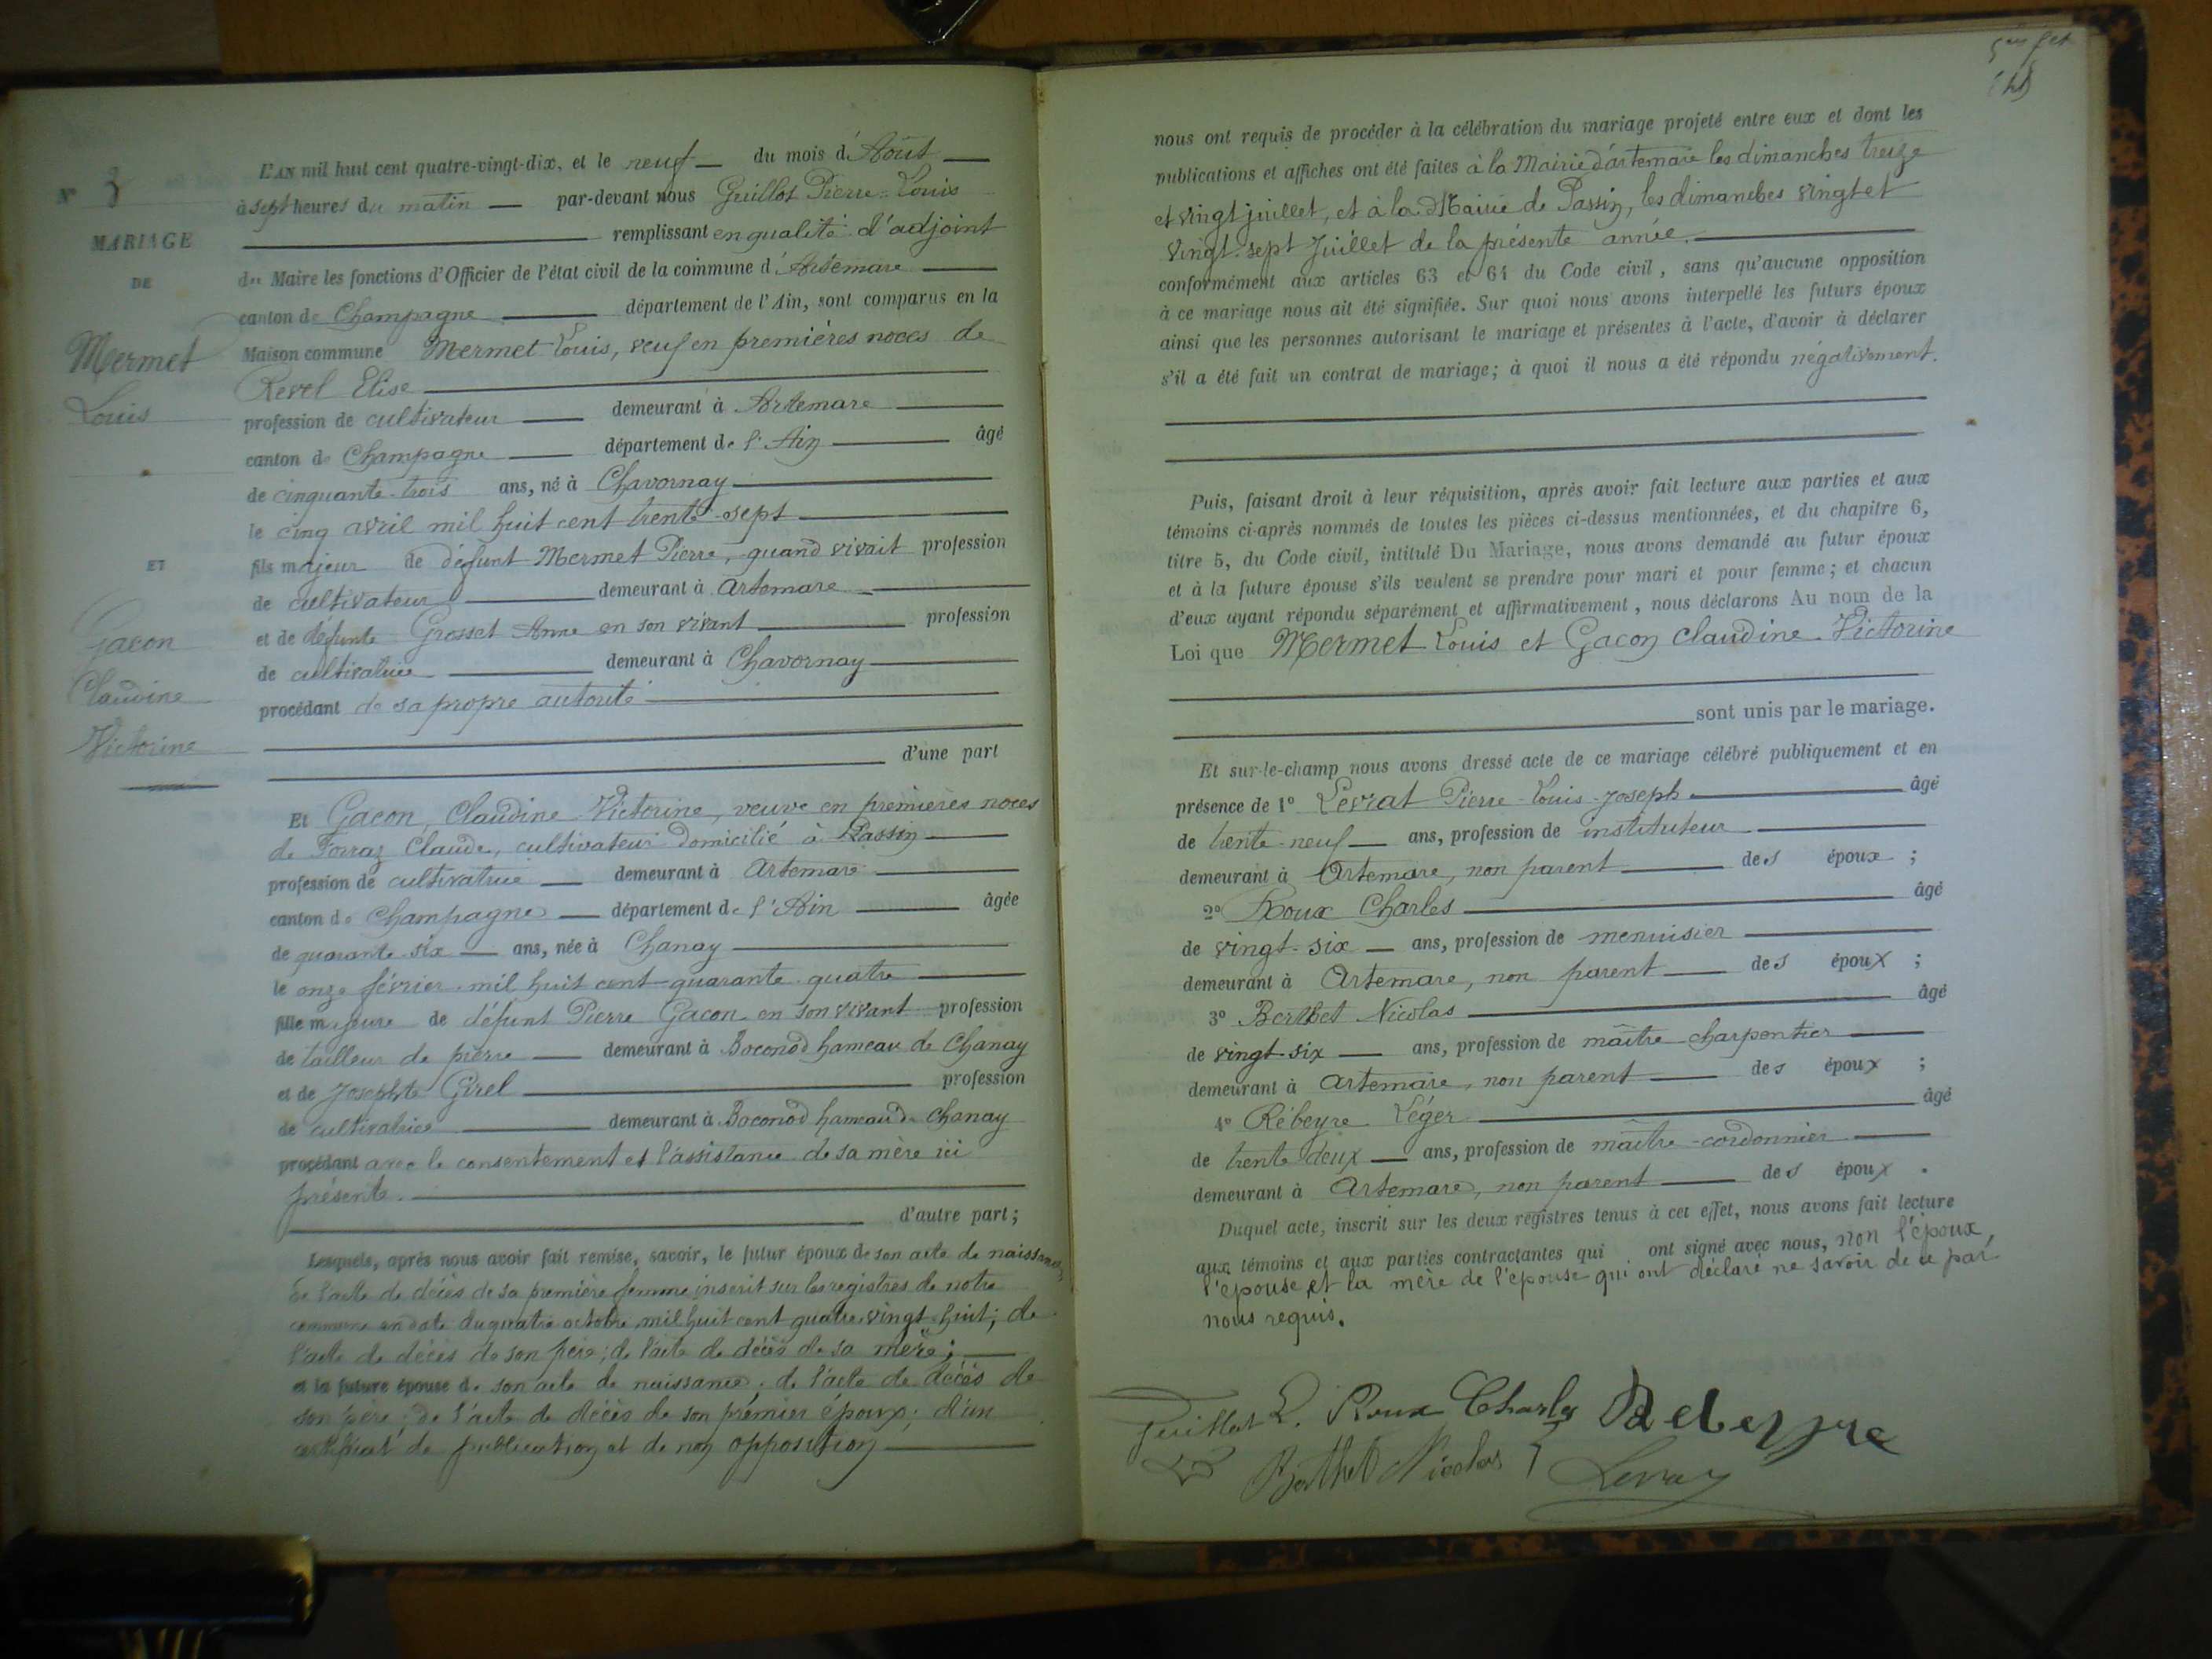 N° 3
MARIAGE
DE
Mermet
Louis
ET
Gacon
Claudine
Victorine
L'AN mil huit cent quatre-vingt-dix, et le neuf du mois d'Août
à sept heures du matin par-devant nous Guillot Pierre-Louis
remplissant en qualité d'adjoint
du Maire les fonctions d'Officier de l'état civil de la commune d'Artemare
canton de Champagne département de l'Ain, sont comparus en la
Maison commune Mermet Louis, veuf en premières noces de
Revel Elise
profession de cultivateur demeurant à Artemare
canton de Champagne département de l'Ain âgé
de cinquante-trois ans, né à Chavornay
le cinq avril mil huit cent trente-sept
fils majeur de défunt Mermet Pierre, quand vivait profession
de cultivateur demeurant à Artemare
et de défunte Grosset Anne en son vivant profession
de cultivatrice demeurant à Chavornay
procédant de sa propre autorité
d'une part
Et Gacon, Claudine Victorine, veuve en premières noces
de Forraz Claude, cultivateur domicilié à Passin
profession de cultivatrice demeurant à Artemare
canton de Champagne département de l'Ain âgée
de quarante-six ans, née à Chanay
le onze février mil huit cent quarante-quatre
fille majeure de défunt Pierre Gacon en son vivant profession
de tailleur de pierre demeurant à Boconod hameau de Chanay
et de Josephte Girel profession
de cultivatrice demeurant à Boconod hameau de Chanay
procédant avec le consentement et l'assistance de sa mère ici
présente.
d'autre part;
Lesquels, après nous avoir fait remise, savoir, le futur époux de son acte de naissance,
de l'acte de décès de sa première femme inscrit sur les registres de notre
commune en date du quatre octobre mil huit cent quatre-vingt-huit; de
l'acte de décès de son père; de l'acte de décès de sa mère;
et la future épouse de son acte de naissance, de l'acte de décès de
son père; de l'acte de décès de son premier époux; d'un
certificat de publication et de non opposition
nous ont requis de procéder à la célébration du mariage projeté entre eux et dont les
publications et affiches ont été faites à la Mairie d'artemare les dimanches treize
et vingt juillet, et à la Mairie de Passin, les dimanches vingt et
vingt-sept Juillet de la présente année.
conformément aux articles 63 et 64 du Code civil, sans qu'aucune opposition
à ce mariage nous ait été signifiée. Sur quoi nous avons interpellé les futurs époux
ainsi que les personnes autorisant le mariage et présentes à l'acte, d'avoir à déclarer
s'il a été fait un contrat de mariage; à quoi il nous a été répondu négativement.
Puis, faisant droit à leur réquisition, après avoir fait lecture aux parties et aux
témoins ci-après nommés de toutes les pièces ci-dessus mentionnées, et du chapitre 6,
titre 5, du Code civil, intitulé Du Mariage, nous avons demandé au futur époux
et à la future épouse s'ils veulent se prendre pour mari et pour femme; et chacun
d'eux ayant répondu séparément et affirmativement, nous déclarons Au nom de la
Loi que Mermet Louis et Gacon Claudine-Victorine
sont unis par le mariage.
Et sur-le-champ nous avons dressé acte de ce mariage célébré publiquement et en
présence de 1° Levrat Pierre-Louis-Joseph âgé
de trente-neuf ans, profession de instituteur
demeurant à Artemare, non parent des époux;
2° Roux Charles âgé
de vingt-six ans, profession de menuisier
demeurant à Artemare, non parent des époux;
3° Berthet Nicolas âgé
de vingt-six ans, profession de maître charpentier
demeurant à artemare, non parent des époux;
4° Rébeyre Léger âgé
de trente deux ans, profession de maître-cordonnier
demeurant à Artemare, non parent des époux.
Duquel acte, inscrit sur les deux registres tenus à cet effet, nous avons fait lecture
aux témoins et aux parties contractantes qui ont signé avec nous, non l'époux
l'épouse et la mère de l'épouse qui ont déclaré ne savoir de ce par
nous requis.
Guillot L. Roux Charles Rebeyre
Berthet Nicolas Levrat